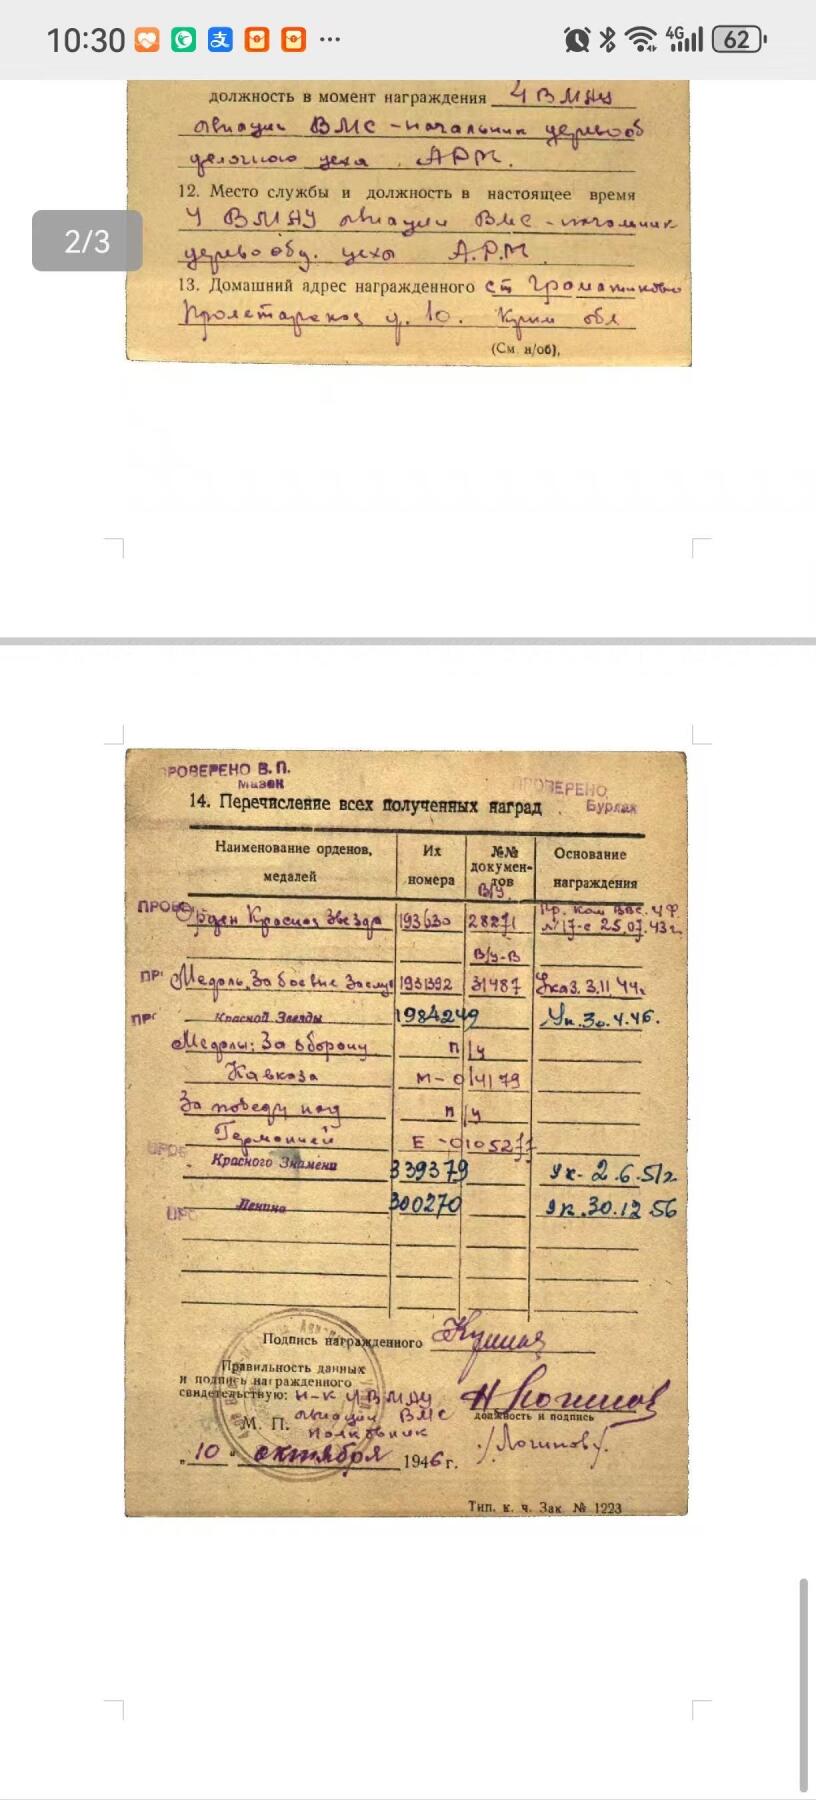 10:30
4G
62
должность в момент награждения 4 ВМАУ
авиации ВМС - начальник деревооб
делочного цеха АРМ.
2/3
12. Место службы и должность в настоящее время
4 ВМАУ авиации ВМС - начальник
деревообд. цеха А.Р.М.
13. Домашний адрес награжденного ст Граматиково
Пролетарская д. 10. Крым обл
(См. н/об),
ПРОВЕРЕНО В. П.
Мазок
ПРОВЕРЕНО
Бурлак
14. Перечисление всех полученных наград
Наименование орденов, медалей
Их номера
№№ документов
Основание награждения
В/У.
Орден Красная Звезда 193630 28271 Пр. Ком ВВС. ЧФ. № 17-с 25.07.43 г.
В/У-В
Медаль За боевые Заслуг 1931392 31487 Указ. 3.11.44г.
Красной Звезды 1984249 Ук. 30.4.46.
Медаль: За оборону П/У
Кавказа М-014179
За победу над П/У
Германией Е-0105277
Красного Знамени 339379 Ук- 2.6.51г.
Ленина 300270 Ук. 30.12 56
Подпись награжденного
Правильность данных
и подпись награжденного
свидетельствую: Н-К 4 ВМАУ
авиации ВМС
М. П. полковник
должность и подпись
/Логинов/.
„10“ октября 1946 г.
Тип. к. ч. Зак № 1223